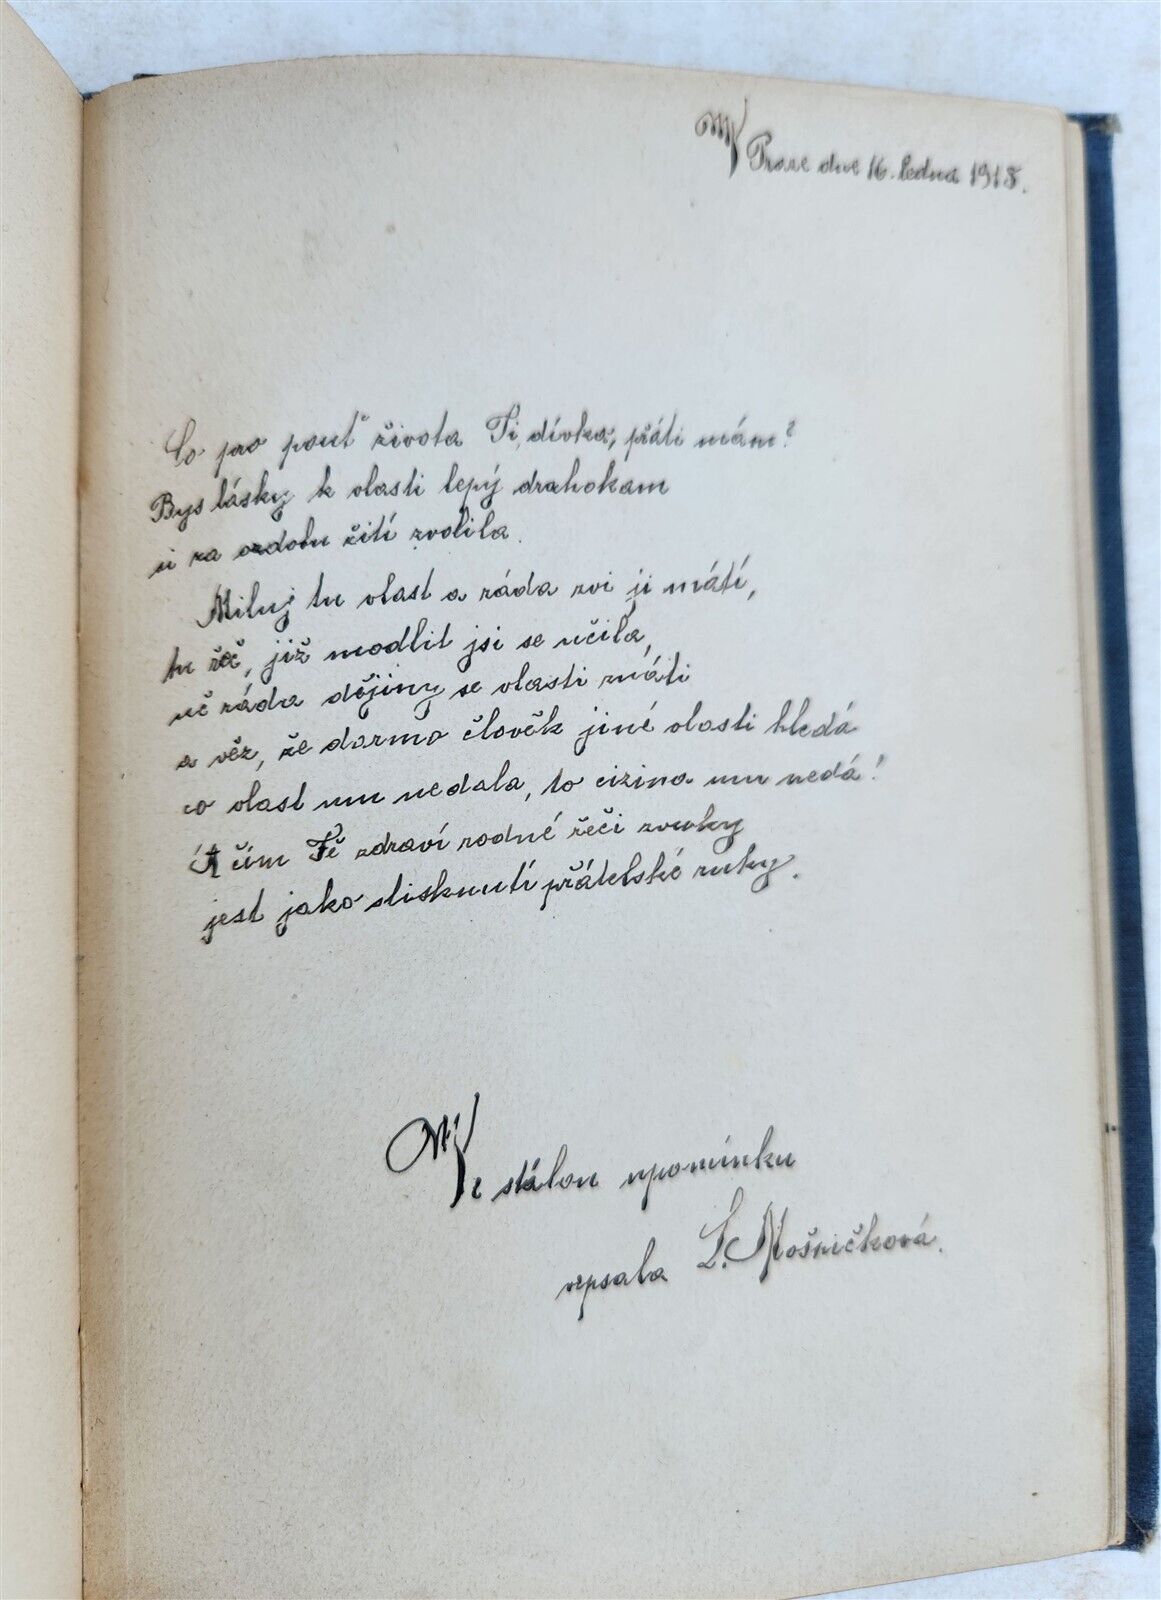 V Praze dne 16. ledna 1918.
Co pro pouť života Ti, dívka, přáti mám?
Bys lásky k vlasti lepý drahokam
si za ozdobu žití zvolila.
Miluj tu vlast a ráda zvi ji mátí,
tu řeč, jíž modlit jsi se učila,
uč ráda dějiny se vlasti znáti
a věz, že darmo člověk jiné vlasti hledá
co vlast mu nedala, to cizina mu nedá!
A čím Tě zdraví rodné řeči zvuky
jest jako stisknutí přátelské ruky.
Ve stálou upomínku
vepsala L. Mošničková.